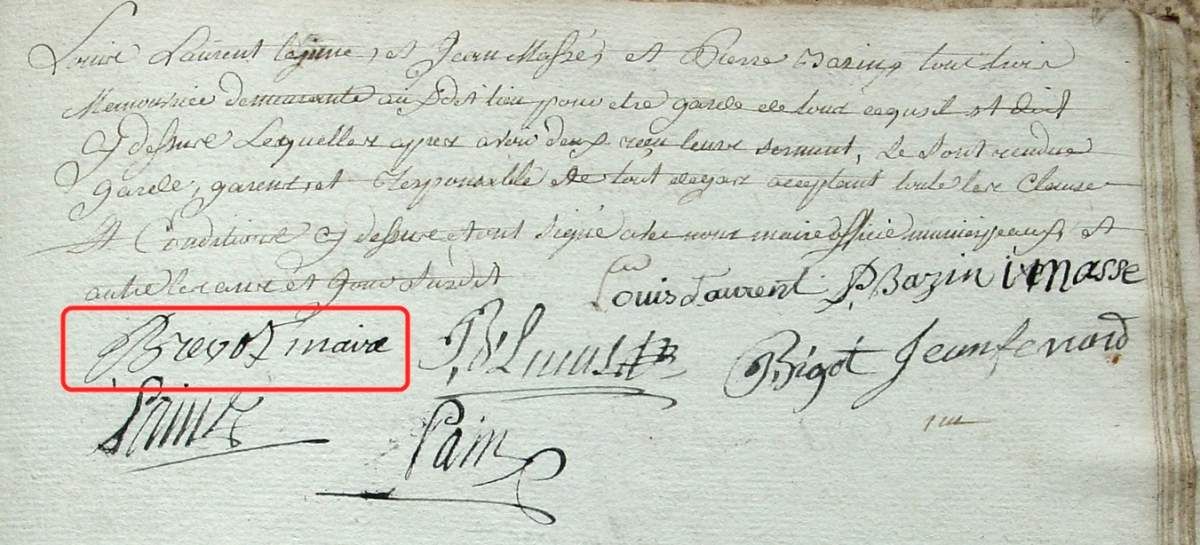 Louis Laurent lejeune, et Jean Massé, et Pierre Bazin, tout trois
demeurante au dit lieu pour etre garde de tout cequil est dict
cy dessure Lesquelles apres avoir deux reçu leure serment, Le sont rendue
garde, garent, et Responsible de tout degar acceptant toute les Clause
Et Conditione cy dessure et ont signé avec nous maire officié municipeaux, et
autre les ans et jour susdit
Louis Laurent P Bazin i masse
Brevot maire
Bigot Jean fernand
Pain